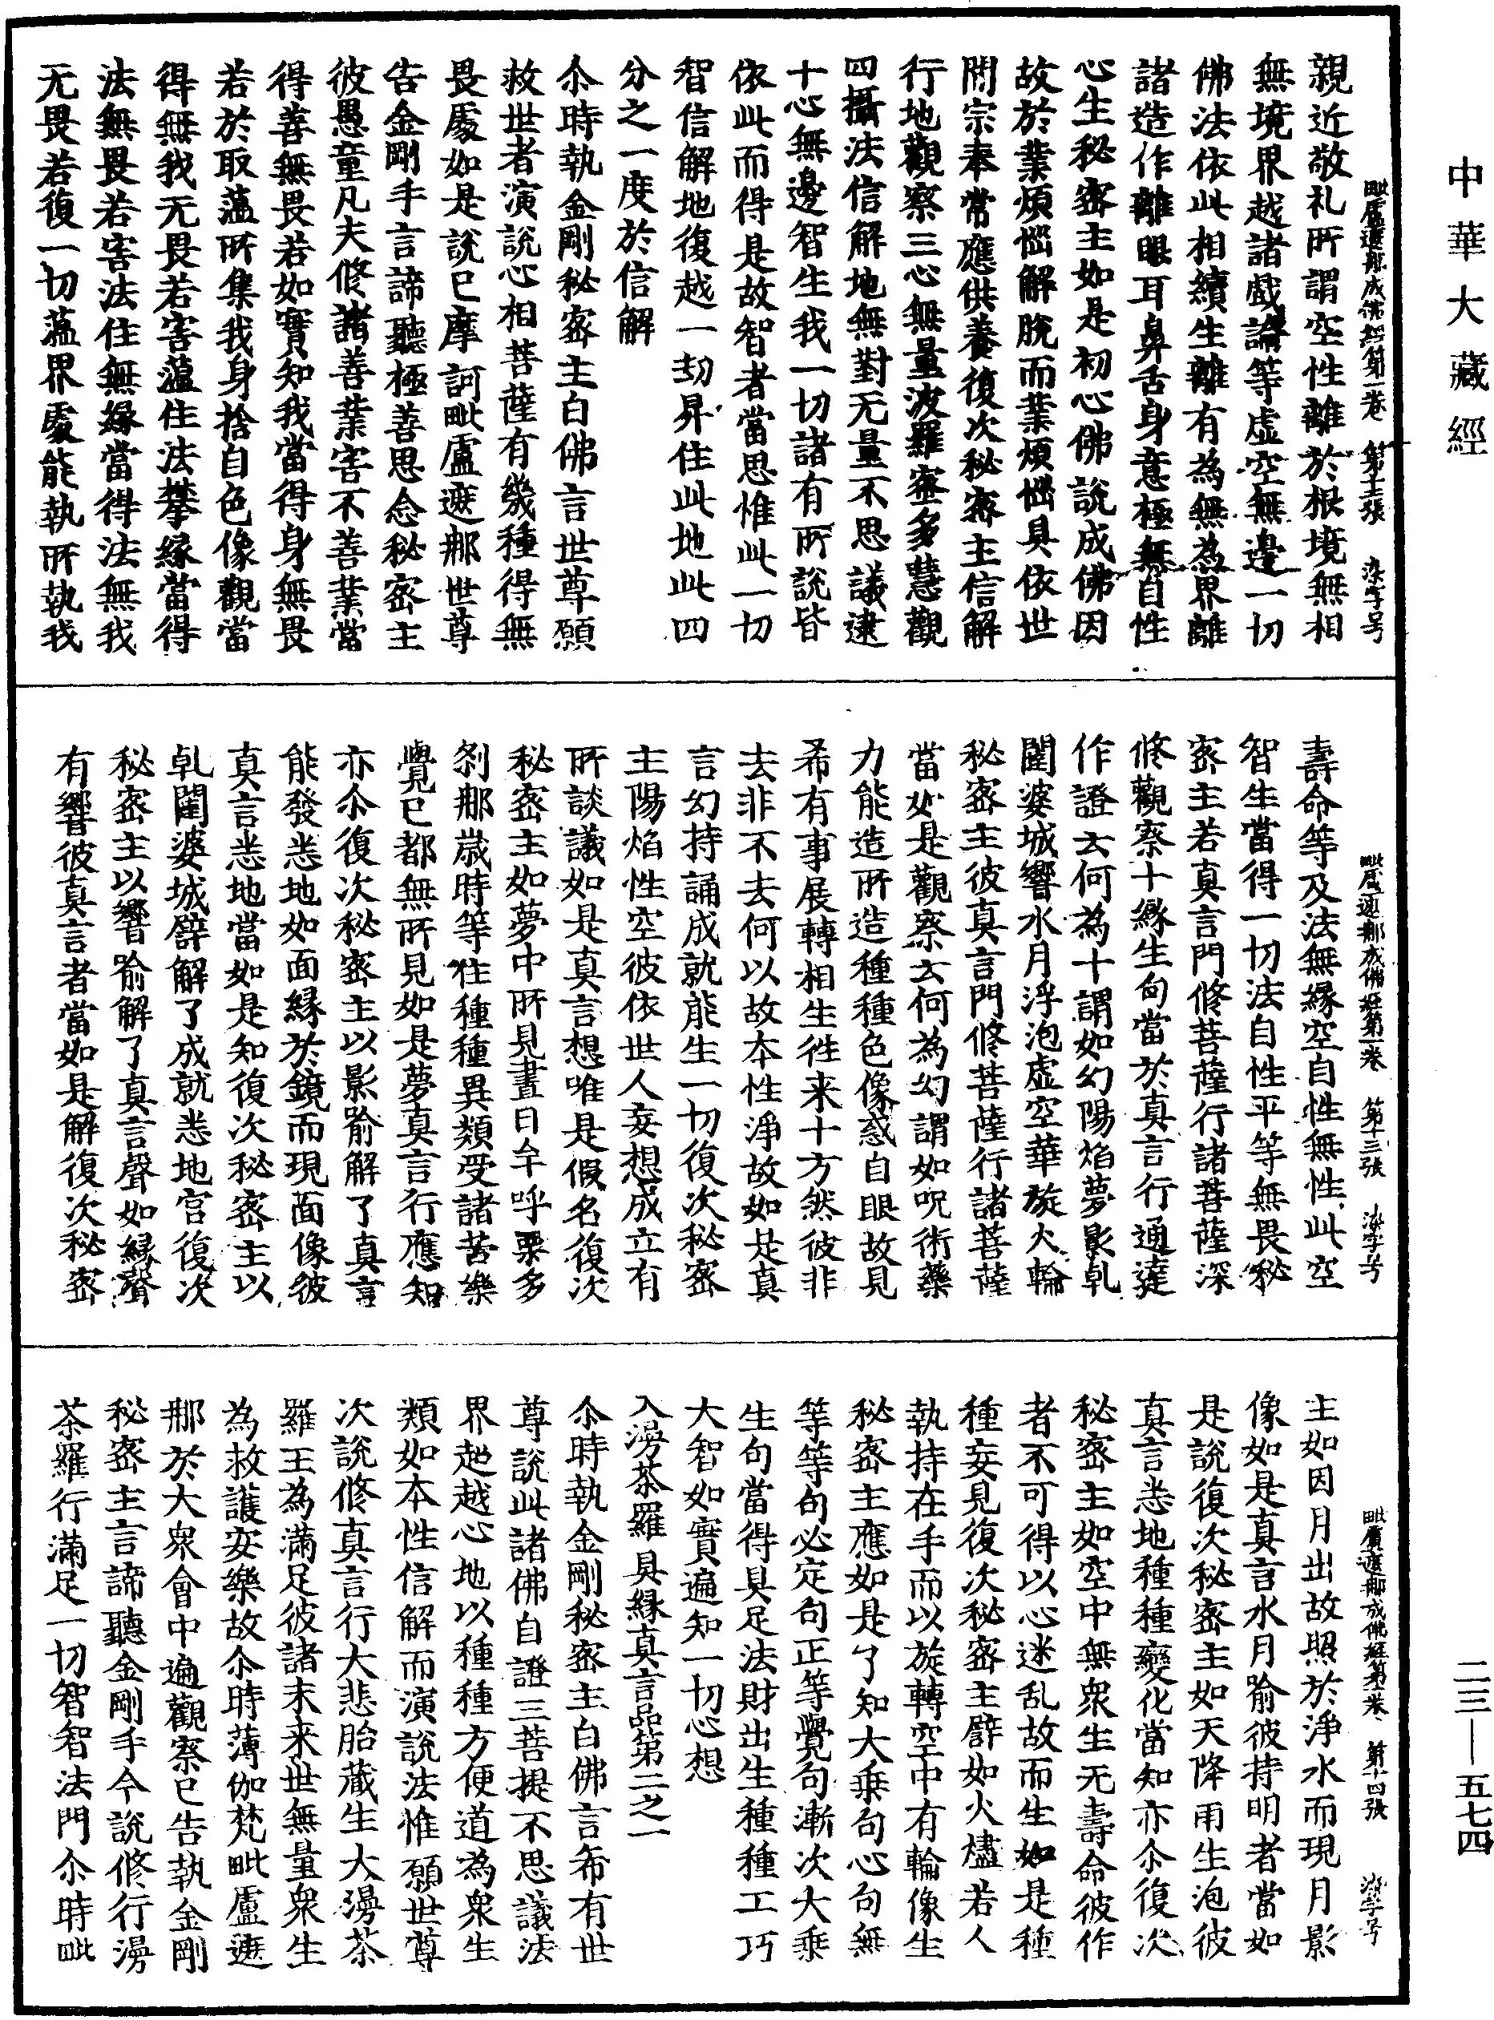 中華大藏經
二三—五七四
毗盧遮那成佛經第一卷 第十二張 染字号
親近敬礼所謂空性離於根境無相
無境界越諸戲論等虛空無邊一切
佛法依此相續生離有為無為界離
諸造作離眼耳鼻舌身意極無自性
心生秘密主如是初心佛說成佛因
故於業煩惱解脫而業煩惱具依世
間宗奉常應供養復次秘密主信解
行地觀察三心無量波羅蜜多慧觀
四攝法信解地無對无量不思議逮
十心無邊智生我一切諸有所說皆
依此而得是故智者當思惟此一切
智信解地復越一劫昇住此地此四
分之一度於信解
尒時執金剛秘密主白佛言世尊願
救世者演說心相菩薩有幾種得無
畏處如是說已摩訶毗盧遮那世尊
告金剛手言諦聽極善思念秘密主
彼愚童凡夫修諸善業害不善業當
得善無畏若如實知我當得身無畏
若於取蕴所集我身捨自色像觀當
得無我无畏若害蕴住法攀緣當得
法無畏若害法住無緣當得法無我
无畏若復一切蕴界處能執所執我
毗盧遮那成佛經第一卷 第十三張 染字号
壽命等及法無緣空自性無性此空
智生當得一切法自性平等無畏秘
密主若真言門修菩薩行諸菩薩深
修觀察十緣生句當於真言行通達
作證云何為十謂如幻陽焰夢影乹
闥婆城響水月浮泡虛空華旋火輪
秘密主彼真言門修菩薩行諸菩薩
當如是觀察云何為幻謂如呪術藥
力能造所造種種色像惑自眼故見
希有事展轉相生徃来十方然彼非
去非不去何以故本性淨故如是真
言幻持誦成就能生一切復次秘密
主陽焰性空彼依世人妄想成立有
所談議如是真言想唯是假名復次
秘密主如夢中所見晝日牟呼栗多
刹那歲時等住種種異類受諸苦樂
覺已都無所見如是夢真言行應知
亦尒復次秘密主以影喻解了真言
能發悉地如面緣於鏡而現面像彼
真言悉地當如是知復次秘密主以
乹闥婆城譬解了成就悉地宮復次
秘密主以響喻解了真言聲如緣聲
有響彼真言者當如是解復次秘密
毗盧遮那成佛經第一卷 第十四張 染字号
主如因月出故照於淨水而現月影
像如是真言水月喻彼持明者當如
是說復次秘密主如天降雨生泡彼
真言悉地種種變化當知亦尒復次
秘密主如空中無眾生无壽命彼作
者不可得以心迷乱故而生如是種
種妄見復次秘密主譬如火燼若人
執持在手而以旋轉空中有輪像生
秘密主應如是了知大乗句心句無
等等句必定句正等覺句漸次大乗
生句當得具足法財出生種種工巧
大智如實遍知一切心想
入漫荼羅具緣真言品第二之一
尒時執金剛秘密主白佛言希有世
尊說此諸佛自證三菩提不思議法
界超越心地以種種方便道為眾生
類如本性信解而演說法惟願世尊
次說修真言行大悲胎藏生大漫荼
羅王為滿足彼諸未来世無量眾生
為救護安樂故尒時薄伽梵毗盧遮
那於大眾會中遍觀察已告執金剛
秘密主言諦聽金剛手今說修行漫
荼羅行滿足一切智智法門尒時毗